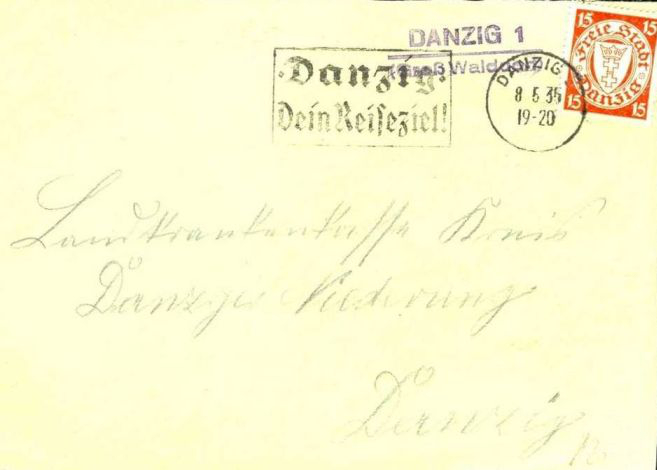 DANZIG 1
(Groß Waldorf)
·Danzig·
Dein Reiseziel!
DANZIG
8 5 35
19-20
15 15
Freie Stadt
Danzig
15 15
Landkrankenkasse Kreis
Danziger Niederung
Danzig